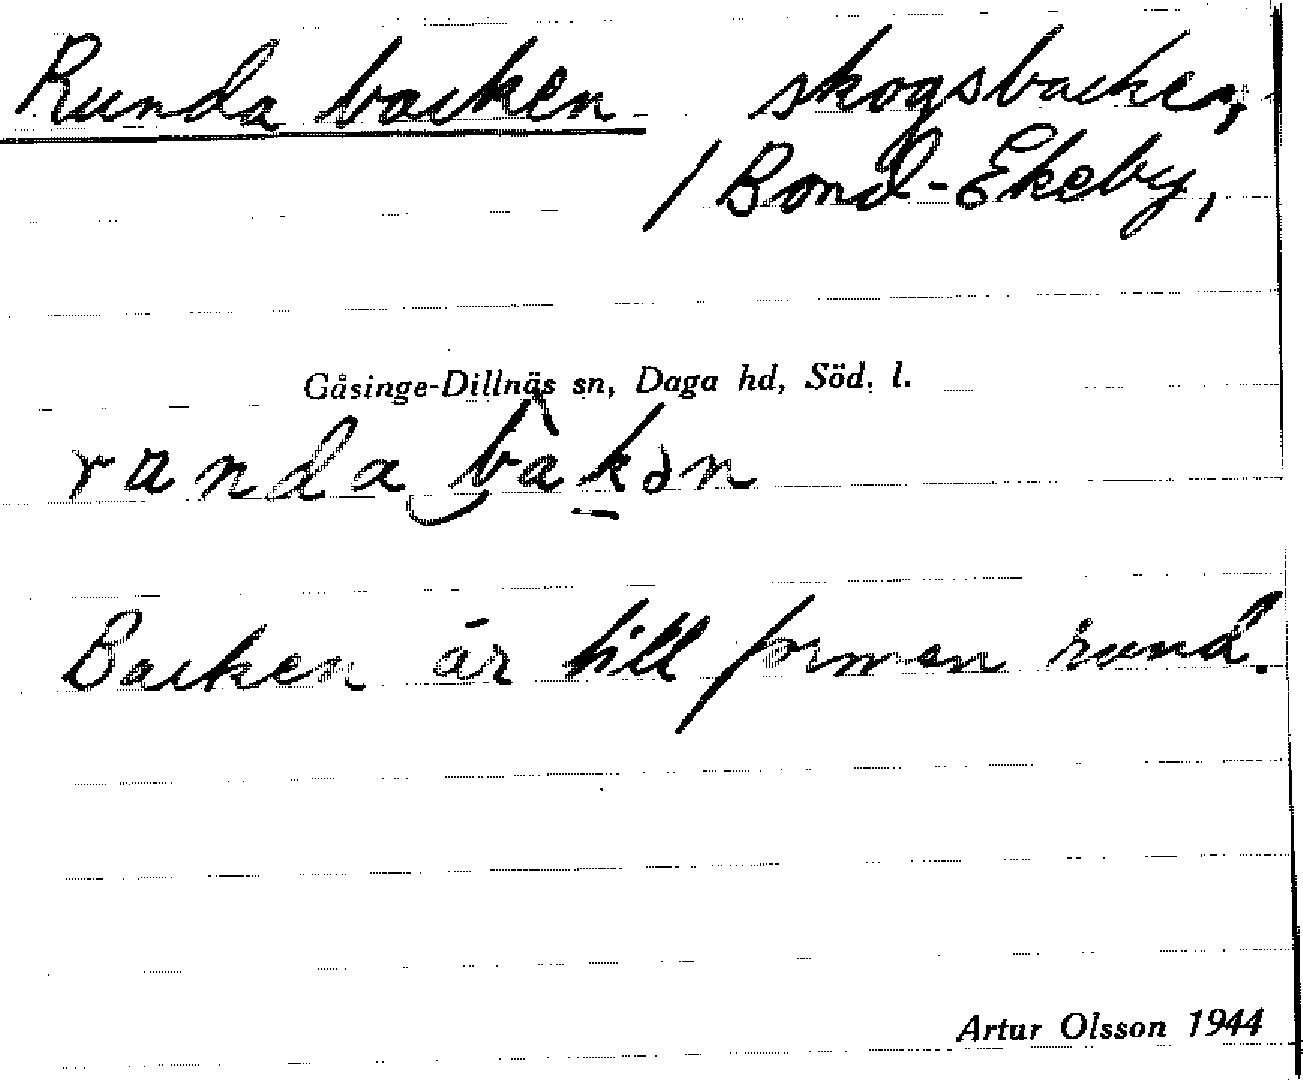 Runda backen skogsbacke,
/ Bond-Ekeby,
Gåsinge-Dillnäs sn, Daga hd, Söd. l.
runda bakən
Backen är till formen rund.
Artur Olsson 1944